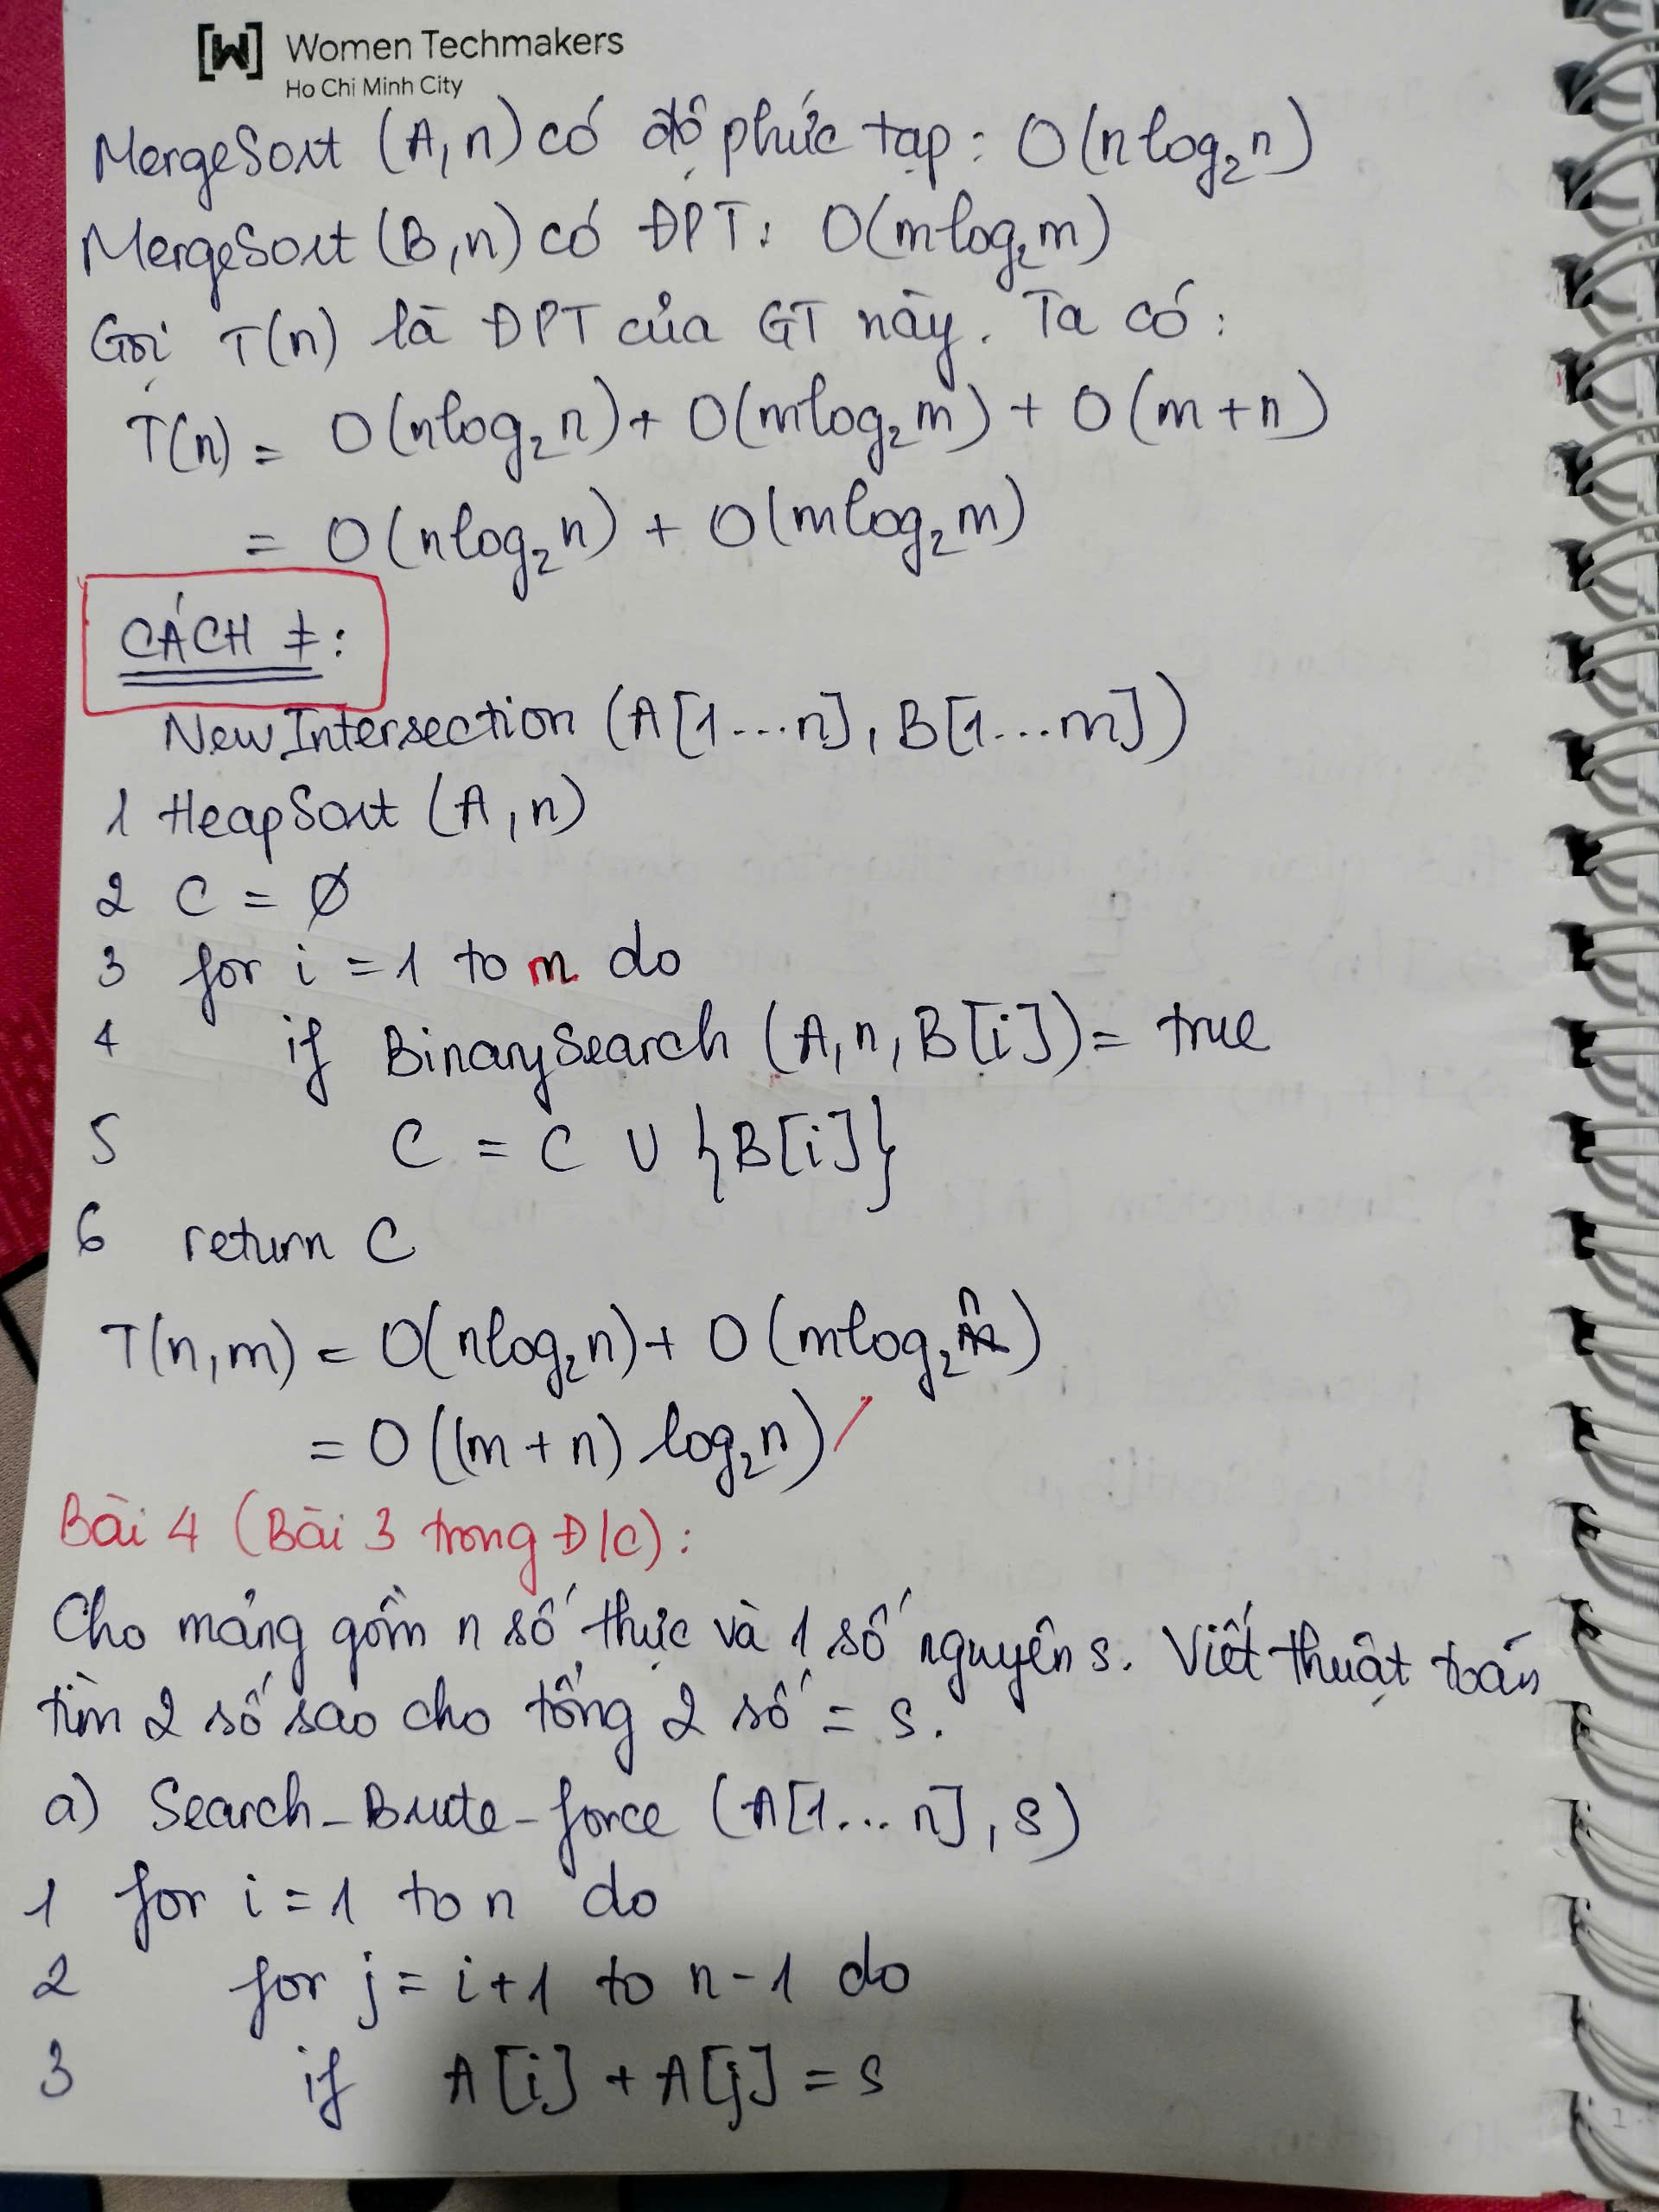 [W] Women Techmakers
Ho Chi Minh City
MergeSort (A, n) có độ phức tạp: O(nlog₂n)
MergeSort (B, n) có ĐPT: O(mlog₂m)
Gọi T(n) là ĐPT của GT này. Ta có:
T(n) = O(nlog₂n) + O(mlog₂m) + O(m+n)
= O(nlog₂n) + O(mlog₂m)
CÁCH ≠:
NewIntersection (A[1...n], B[1...m])
1 HeapSort (A, n)
2 C = ∅
3 for i = 1 to m do
4 if BinarySearch (A, n, B[i]) = true
5 C = C ∪ {B[i]}
6 return C
T(n,m) = O(nlog₂n) + O(mlog₂n)
= O((m+n) log₂n)
Bài 4 (Bài 3 trong Đ/C):
Cho mảng gồm n số thực và 1 số nguyên s. Viết thuật toán
tìm 2 số sao cho tổng 2 số = s.
a) Search-Brute-force (A[1...n], s)
1 for i = 1 to n do
2 for j = i+1 to n-1 do
3 if A[i] + A[j] = s